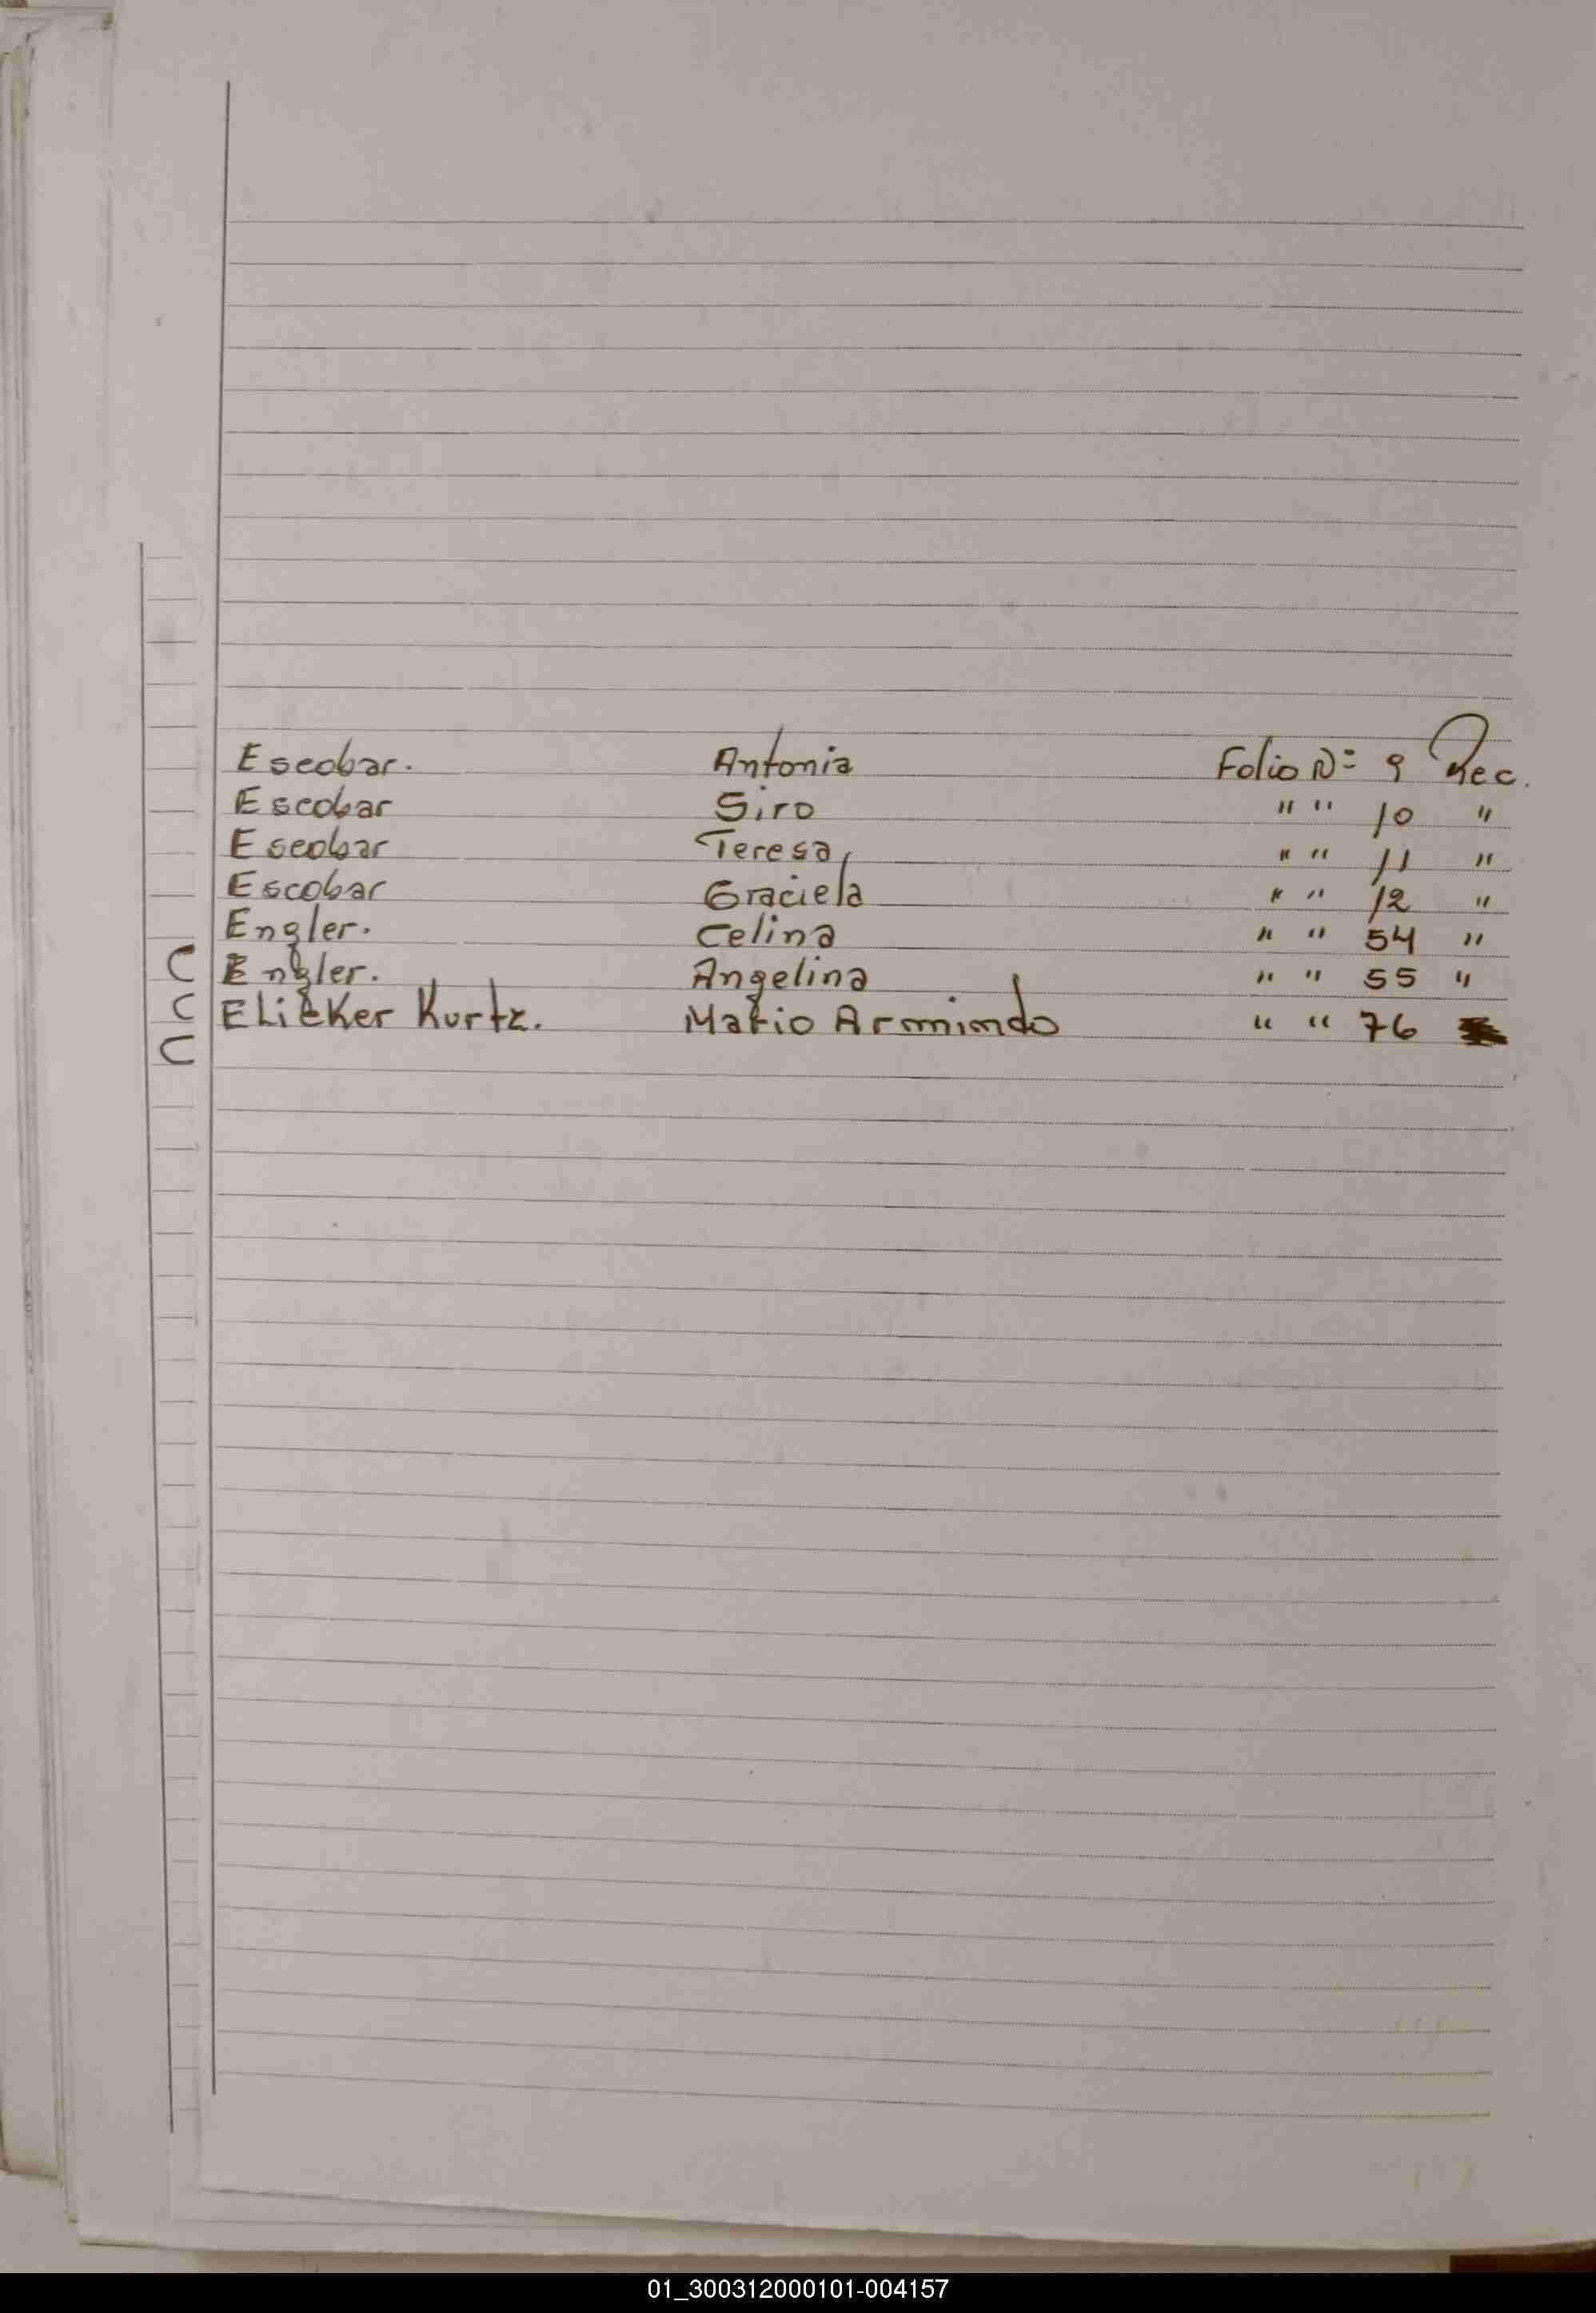 Escobar. Antonia Folio Nº 9 Rec.
Escobar Siro " " 10 "
Escobar Teresa " " 11 "
Escobar Graciela " " 12 "
Engler. Celina " " 54 "
C Engler. Angelina " " 55 "
C Elicker Kurtz. Mario Armindo " " 76
C
01_300312000101-004157